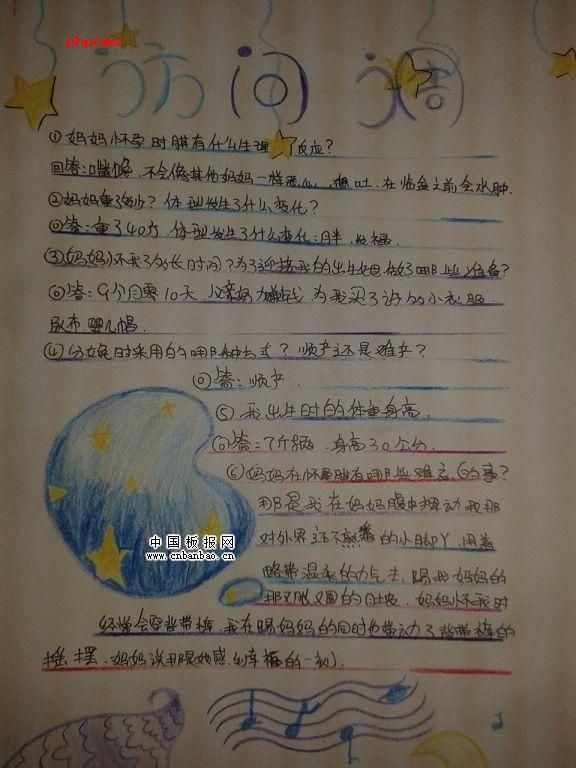 phpcms
访问调
①妈妈怀孕时期有什么生理反应？
回答：嘴馋，不会像其他妈妈一样恶心，想吐，在临盆之前会水肿.
②妈妈重了多少？体型发生了什么变化？
回答：重了40斤，体型发生了什么变化：胖，发福.
③妈妈怀我了多长时间？为了迎接我的出生做了哪些准备？
回答：9个月零10天，努力赚钱，为我买了许的小衣服
尿布，婴儿帽.
④分娩时采用的哪种方式？顺产还是难产？
回答：顺产.
⑤我出生时的体重身高.
回答：7斤，身高30公分.
⑥妈妈在怀孕期有哪些难忘的事？
那是我在妈妈腹中摆动我那
对外界还不熟悉的小脚丫，用着
略带温柔的力气去踢我妈妈的
那又胀又圆的肚皮，妈妈怀我时
中国板报网
www.cnbanbao.cn
经常会穿背带裤，我在踢妈妈的同时也带动了背带裤的
摇摆，妈妈说那是她感到幸福的一刻.